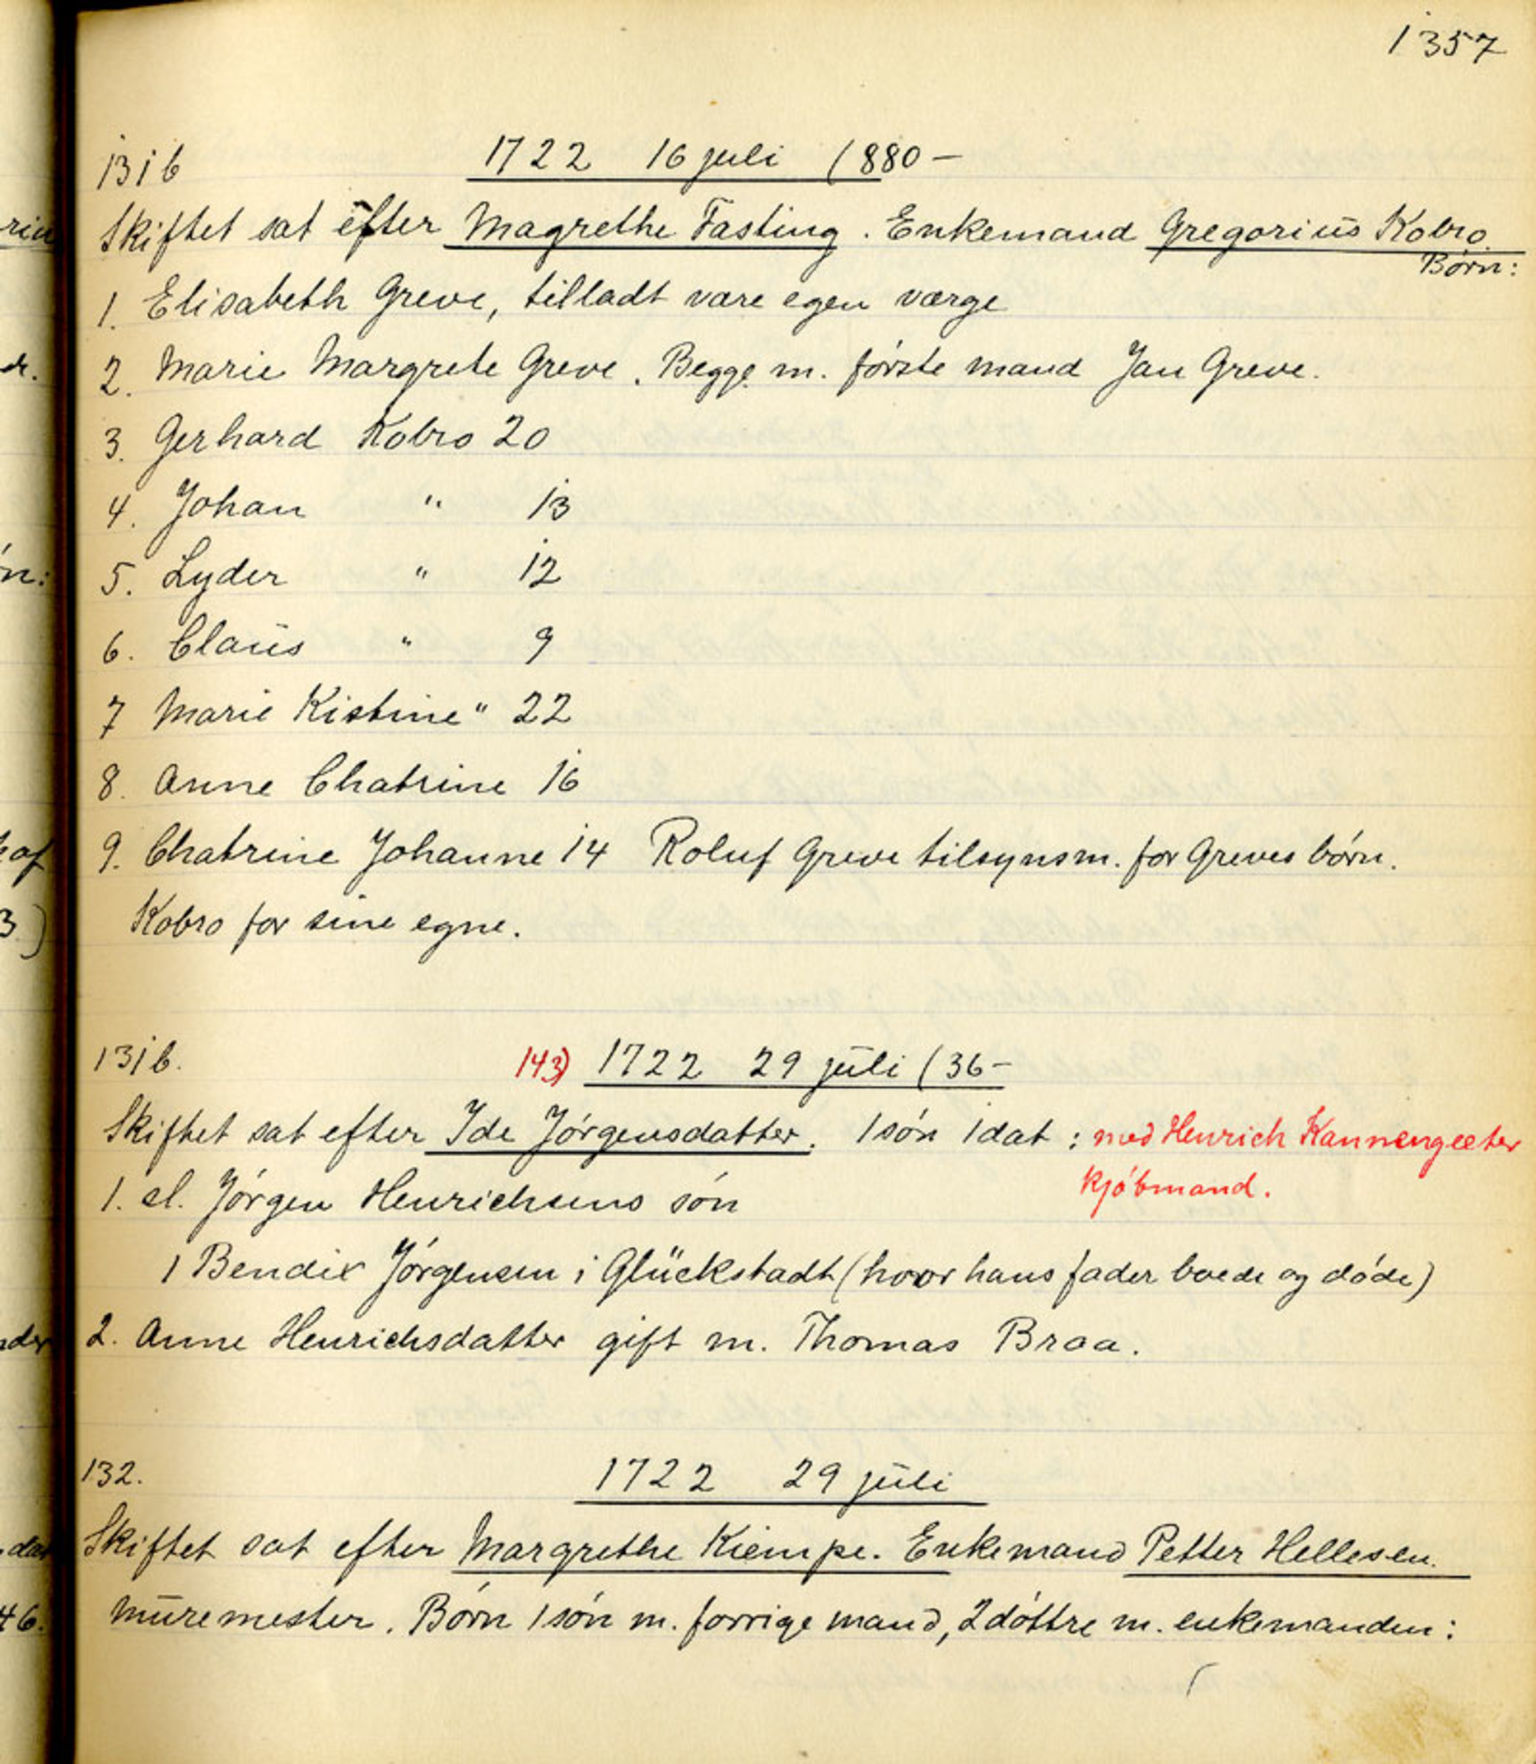 1357
131b 1722 16 juli (880 —
Skiftet sat efter Magrethe Fasting. Enkemand Gregorius Kobro.
Børn:
1. Elisabeth Greve, tilladt være egen værge
2. Marie Margrete Greve. Begge m. første mand Jan Greve.
3. Gerhard Kobro 20
4. Johan " 13
5. Lyder " 12
6. Claus " 9
7 Marie Kistine " 22
8. Anne Chatrine 16
9. Chatrine Johanne 14 Roluf Greve tilsynsm. for Greves børn.
Kobro for sine egne.
131b. 143) 1722 29 juli (36 —
Skiftet sat efter Ide Jørgensdatter. 1 søn 1 dat : med Henrich Kannengeter
kjøbmand.
1. sl. Jørgen Henrichsens søn
1 Bendix Jørgensen i Glückstadt (hvor hans fader boede og døde)
2. Anne Henrichsdatter gift m. Thomas Braa.
132. 1722 29 juli
Skiftet sat efter Margrethe Kiempe. Enkemand Petter Hellesen.
muremester. Børn 1 søn m. forrige mand, 2 døttre m. enkemanden: